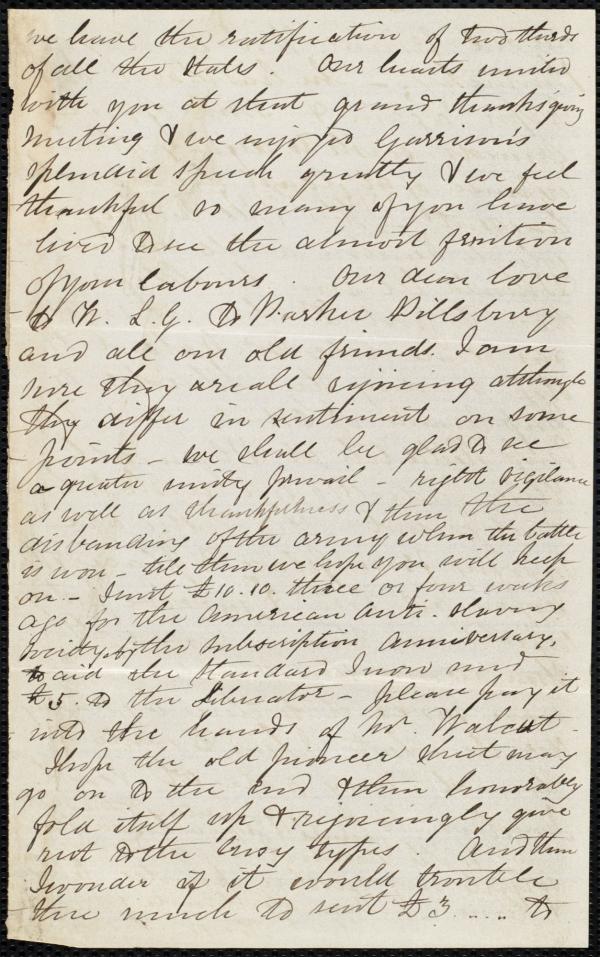 we have the ratification of two thirds
of all the States. Our hearts united
with you at that grand thanksgiving
meeting & we enjoyed Garrison's
splendid speech greatly & we feel
thankful so many of you have
lived to see the almost fruition
of your labours. Our dear love
to W. L. G. to Parker Pillsbury
and all our old friends. I am
sure they are all rejoicing although
they differ in sentiment on some
points - we shall be glad to see
a greater unity prevail - right vigilance
as well as thankfulness & then the
disbanding of the army when the battle
is won - till then we hope you will keep
on - I sent £10.10. three or four weeks
ago for the American Anti-Slavery
Society, by the subscription anniversary,
to aid the Standard I now send
£5. to the Liberator - please pay it
into the hands of Mr. Walcut -
I hope the old pioneer sheet may
go on to the end & then honorably
fold itself up & rejoicingly give
rest to the busy types. And then
I wonder if it would trouble
thee much to send £3 .... to